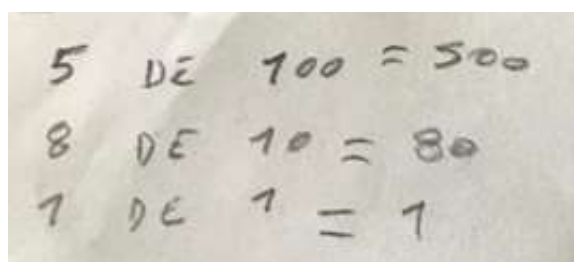 5 DE 100 = 500
8 DE 10 = 80
1 DE 1 = 1